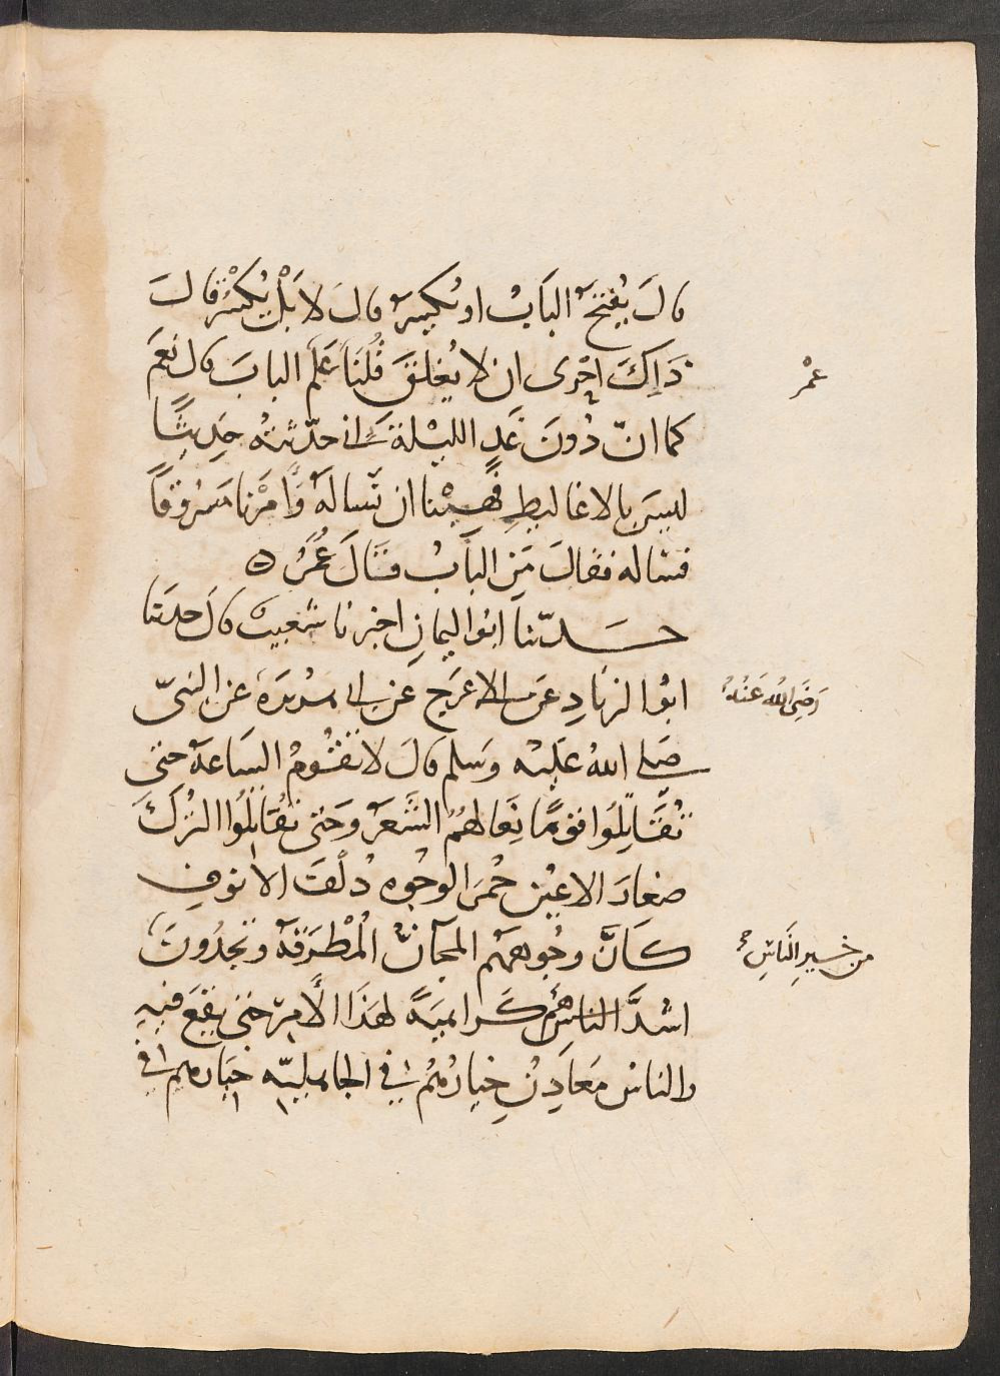 قالَ يُفتحُ البَابُ او يُكسَر قالَ لا بَلْ يُكْسَرُ قالَ
ذَاكَ احْرى ان لا يُغلقَ قُلنَا عَلم البابَ قال نعَم
عمر
كما انّ دُونَ غَدٍ الليْلة انى حدّثتُه حَدِيثًا
ليسَ بالاغاليطِ فهِبْنا ان نَساله وَامَرْنا مَسْرُوقاً
فساله فقالَ مَنِ البَابُ قَالَ عُمَرُ
حدّثنا ابُو اليمانِ اخبرنا شعيبٌ قالَ حدثنا
ابُو الزنادِ عَن الاعرَج عَن ابى هريرَةَ عن النبىّ
رَضِىَ اللهُ عَنْهُ
صَلى اللهُ عَليْه وَسَلم قالَ لا تَقُومُ السَاعَةُ حتى
تُقَاتِلُوا قومًا نِعَالهُمُ الشَّعَر وَحَتى تُقَاتِلُوا التُركَ
صغارَ الاعيُن حُمرَ الوجُوه ذُلْفَ الانوفِ
كَانَّ وجُوههُم المجَانُّ المُطْرَقة وتجدُونَ
من خيرِ النَاسِ
اشدَّ الناس هُم كَراهيَةً لهَذَا الأمر حتى يقعَ فيهِ
والناسُ مَعَادِنُ خيارُهُم فى الجاهليّه خيَارهم فى